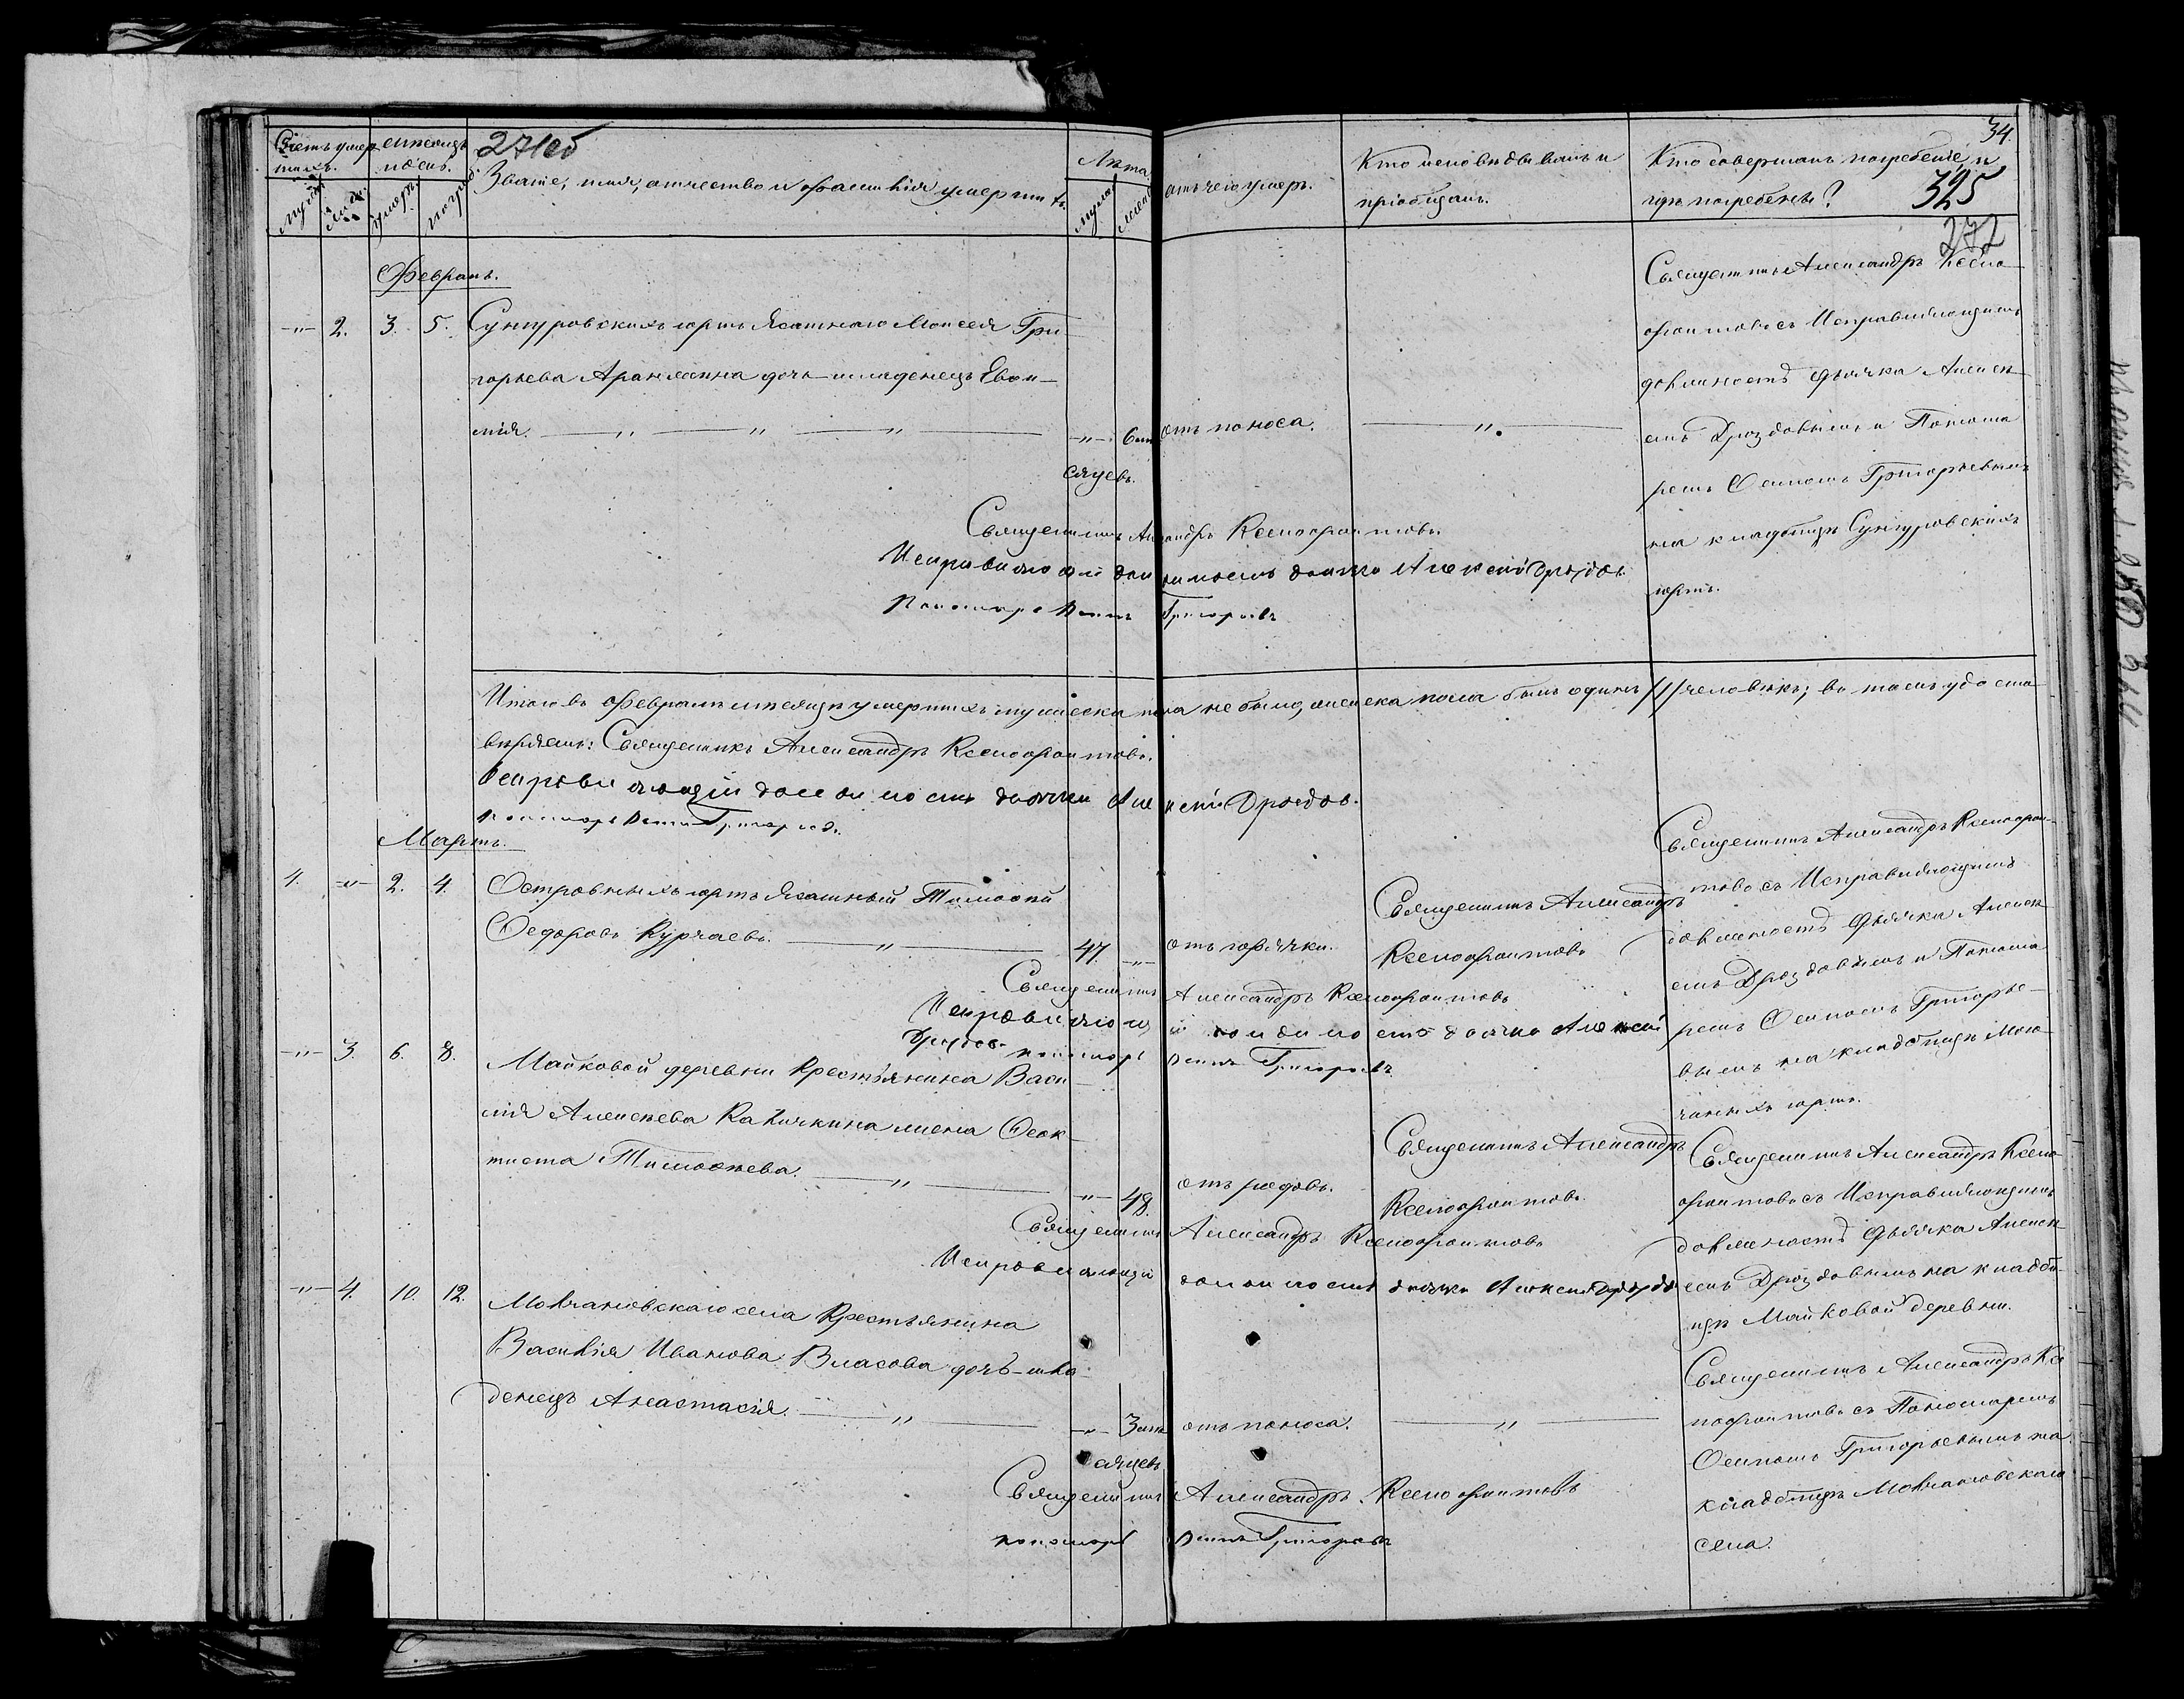 271об
34
325
272
Счетъ умер-
шихъ.
Мѣсяцъ
и день.
Званіе, имя, отчество и фамилія умершихъ.
Лѣта
отъ чего умеръ.
Кто исповѣдывалъ и
пріобщалъ.
Кто совершалъ погребеніе и
гдѣ погребены?
муж.
жен.
умерт.
погреб.
муж.
жен.
Февраль.
-"- 2. 3. 5. Сунгуровскихъ юртъ Ясашнаго Моисея Гри-
горьева Арангасина дочь-младенецъ Евѳи-
мія. -"- 6 мѣ
сяцевъ.
отъ поноса.
-"-
Священникъ Александръ Ксено-
фонтовъ съ Исправляющимъ
должность дьячка Алексѣ-
емъ Дроздовымъ и Понома-
ремъ Осипомъ Григорьевымъ
на кладбищѣ Сунгуровскихъ
юртъ.
Священникъ Александръ Ксенофонтовъ
Исправляющій должность дьячка Алексей Дроздов
Пономарь Осипъ Григорьевъ
Итого въ Февралѣ мѣсяцѣ умершихъ мужеска пола не было, женска пола былъ одинъ /1/ человѣкъ; въ томъ удосто-
вѣряемъ: Священникъ Александръ Ксенофонтовъ.
Исправляющій должность дьячка Алексей Дроздов.
Пономарь Осипъ Григорьевъ.
Мартъ.
1. -"- 2. 4. Островныхъ юртъ Ясашный Тимоѳей
Ѳедоровъ Курчаевъ. 47. -"-
отъ горячки.
Священникъ Александръ
Ксенофонтовъ
Священникъ Александръ Ксенофон-
товъ съ Исправляющимъ
должность дьячка Алексѣ-
емъ Дроздовымъ и Понома-
ремъ Осипомъ Григорье-
вымъ на кладбищѣ Мол-
чаныхъ юртъ.
Священникъ Александръ Ксенофонтовъ
Исправляющій должность дьячка Алексей
Дроздов пономарь Осипъ Григорьевъ
-"- 3. 6. 8. Майковой деревни Крестьянина Васи-
лія Алексѣева Каличкина жена Ѳеок-
тиста Тимоѳѣева. -"- 48.
отъ родовъ.
Священникъ Александръ
Ксенофонтовъ.
Священникъ Александръ Ксено-
фонтовъ съ Исправляющимъ
должность дьячка Алексѣ-
емъ Дроздовымъ на кладби-
щѣ Майковой деревни.
Священникъ Александръ Ксенофонтовъ
Исправляющій должность дьячка Алексей Дроздов
-"- 4. 10. 12. Молчановскаго села Крестьянина
Василія Иванова Власова дочь-мла-
денецъ Анастасія. -"- 3 мѣ
сяцевъ
отъ поноса.
-"-
Священникъ Александръ Ксе-
нофонтовъ съ Пономаремъ
Осипомъ Григорьевымъ на
кладбищѣ Молчановскаго
села.
Священникъ Александръ Ксенофонтовъ
пономарь Осипъ Григорьевъ